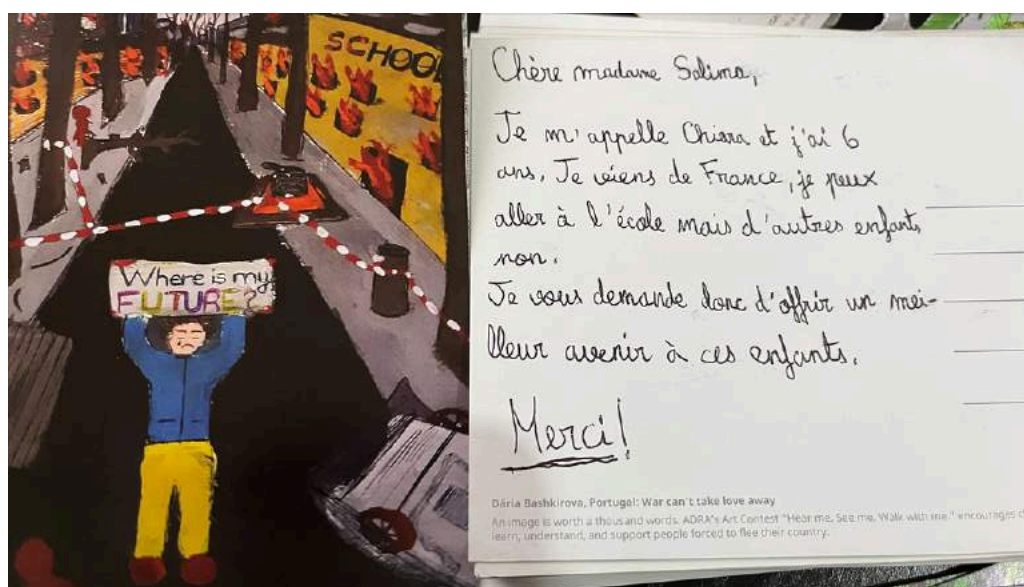 SCHOOL
Where is my
FUTURE?
Chère madame Salima,
Je m'appelle Chiara et j'ai 6
ans. Je viens de France, je peux
aller à l'école mais d'autres enfants
non.
Je vous demande donc d'offrir un mei-
lleur avenir à ces enfants.
Merci!
Dária Bashkirova, Portugal: War can't take love away
An image is worth a thousand words. ADRA's Art Contest "Hear me. See me. Walk with me." encourages
learn, understand, and support people forced to flee their country.